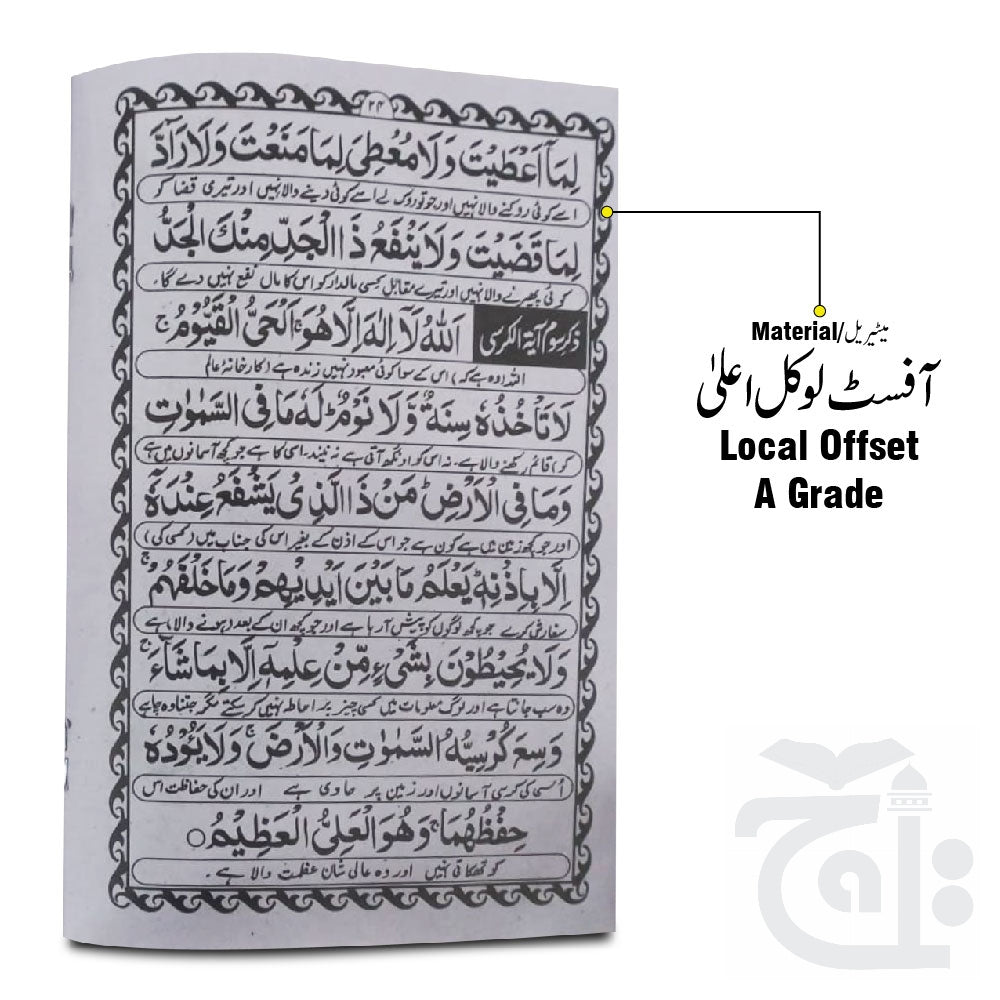 ۲۴
لِمَآ اَعْطَيْتَ وَلَا مُعْطِىَ لِمَا مَنَعْتَ وَلَا رَآدَّ
اسے کوئی روکنے والا نہیں اور جو تو روک لے اسے کوئی دینے والا نہیں اور تیری قضا کو
لِمَا قَضَيْتَ وَلَا يَنْفَعُ ذَا الْجَدِّ مِنْكَ الْجَدُّ
کوئی پھیرنے والا نہیں اور تیرے مقابل کسی مالدار کو اس کا مال نفع نہیں دے گا۔
ذکر سوم آیۃ الکرسی اَللّٰهُ لَآ اِلٰهَ اِلَّا هُوَ ۚ اَلْحَىُّ الْقَيُّوْمُ ۚ
اللہ (وہ ہے کہ) اس کے سوا کوئی معبود نہیں زندہ ہے (کارخانۂ عالم
لَا تَاْخُذُهٗ سِنَةٌ وَّلَا نَوْمٌ ؕ لَهٗ مَا فِى السَّمٰوٰتِ
کو) قائم رکھنے والا ہے۔ نہ اس کو اونگھ آتی ہے نہ نیند۔ اسی کا ہے جو کچھ آسمانوں میں ہے
وَمَا فِى الْاَرْضِ ؕ مَنْ ذَا الَّذِىْ يَشْفَعُ عِنْدَهٗٓ
اور جو کچھ زمین میں ہے کون ہے جو اس کے اذن کے بغیر اس کی جناب میں (کسی کی)
اِلَّا بِاِذْنِهٖ ؕ يَعْلَمُ مَا بَيْنَ اَيْدِيْهِمْ وَمَا خَلْفَهُمْ ۚ
سفارش کرے جو کچھ لوگوں کو پیش آرہا ہے اور جو کچھ ان کے بعد ہونے والا ہے
وَلَا يُحِيْطُوْنَ بِشَىْءٍ مِّنْ عِلْمِهٖٓ اِلَّا بِمَا شَآءَ ۚ
وہ سب جانتا ہے اور لوگ معلومات میں کسی چیز پر احاطہ نہیں کر سکتے مگر جتنا وہ چاہے
وَسِعَ كُرْسِيُّهُ السَّمٰوٰتِ وَالْاَرْضَ ۚ وَلَا يَـُٔوْدُهٗ
اُسی کی کرسی آسمانوں اور زمین پر حاوی ہے اور ان کی حفاظت اس
حِفْظُهُمَا ۚ وَهُوَ الْعَلِىُّ الْعَظِيْمُ ○
کو تھکاتی نہیں اور وہ عالی شان عظمت والا ہے۔
Material/میٹیریل
آفسٹ لوکل اعلیٰ
Local Offset
A Grade